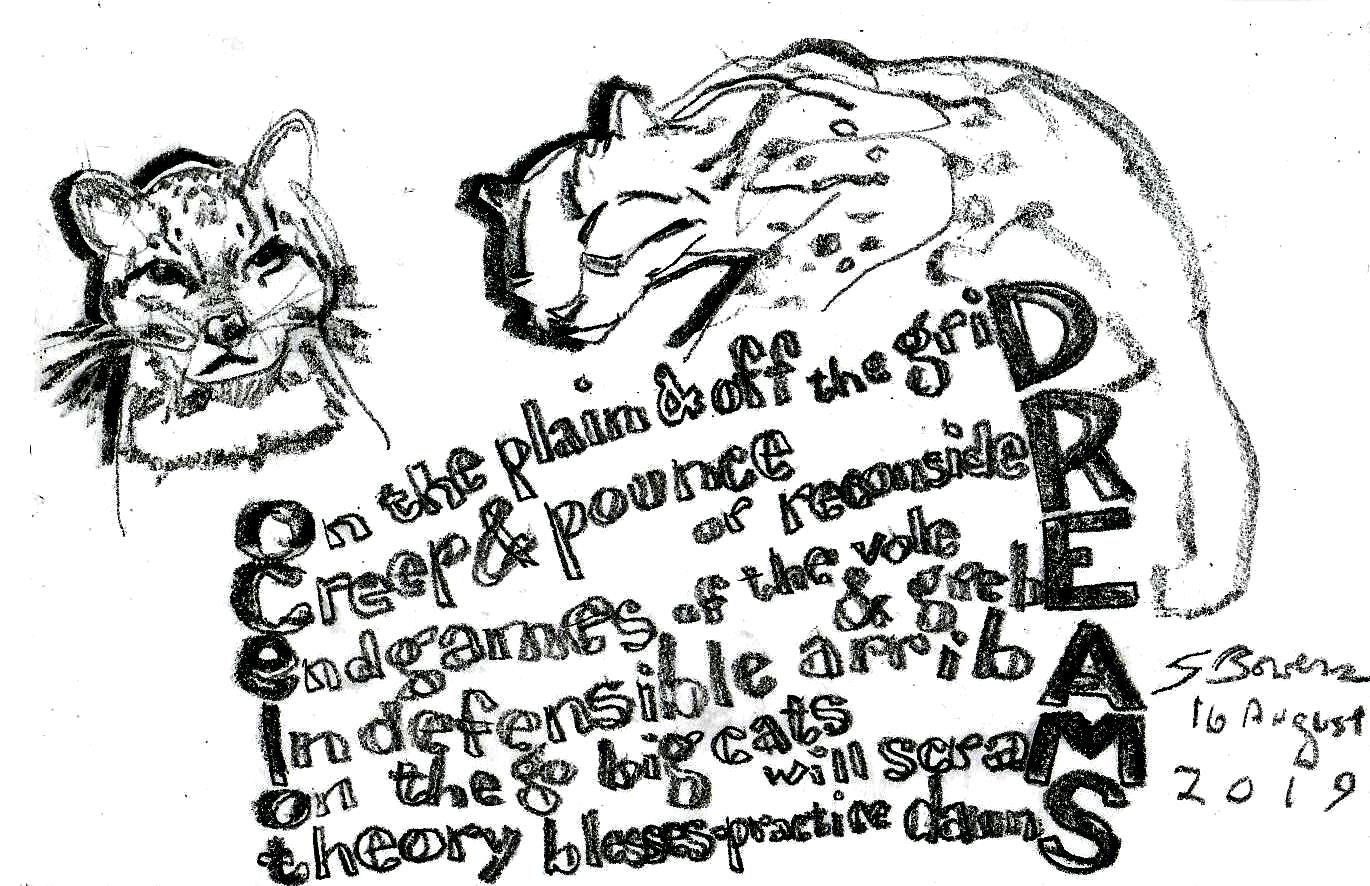 On the plain & off the griD
Creep & pounce or reconsideR
endgames of the vole & grebE
IndefensibIe arribA
on the go big cats will scraM
theory blesses-practice damnS
16 August
2019